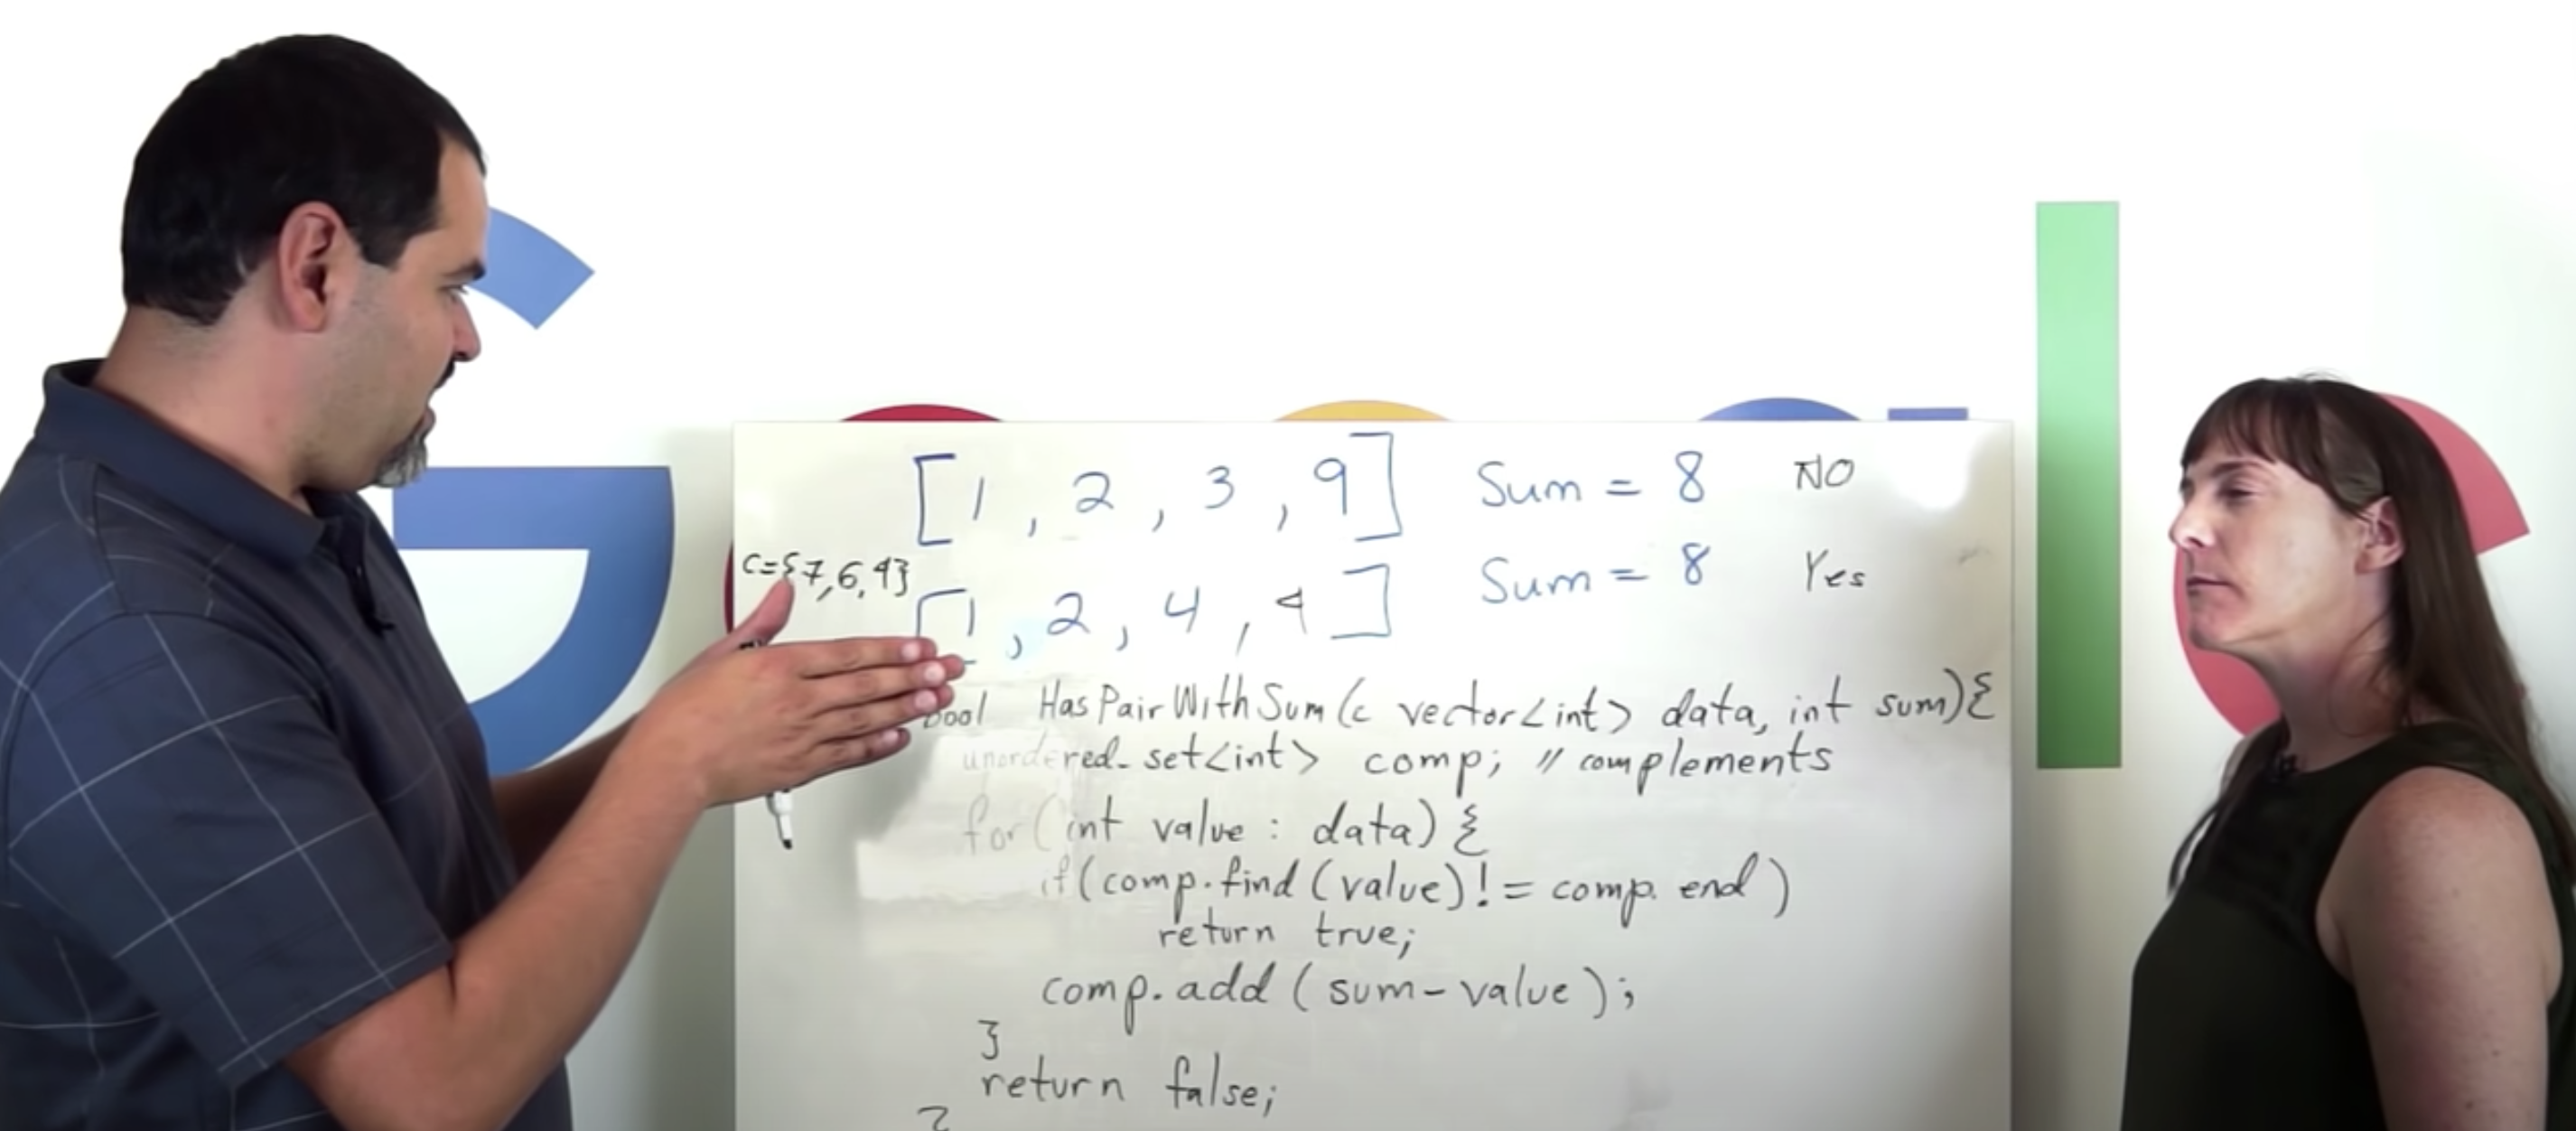 [1, 2, 3, 9] Sum = 8 NO
c={7,6,4}
[1, 2, 4, 4] Sum = 8 Yes
bool HasPairWithSum(c vector<int> data, int sum){
unordered_set<int> comp; // complements
for(int value : data) {
if(comp.find(value)!= comp.end)
return true;
comp.add(sum-value);
}
return false;
}